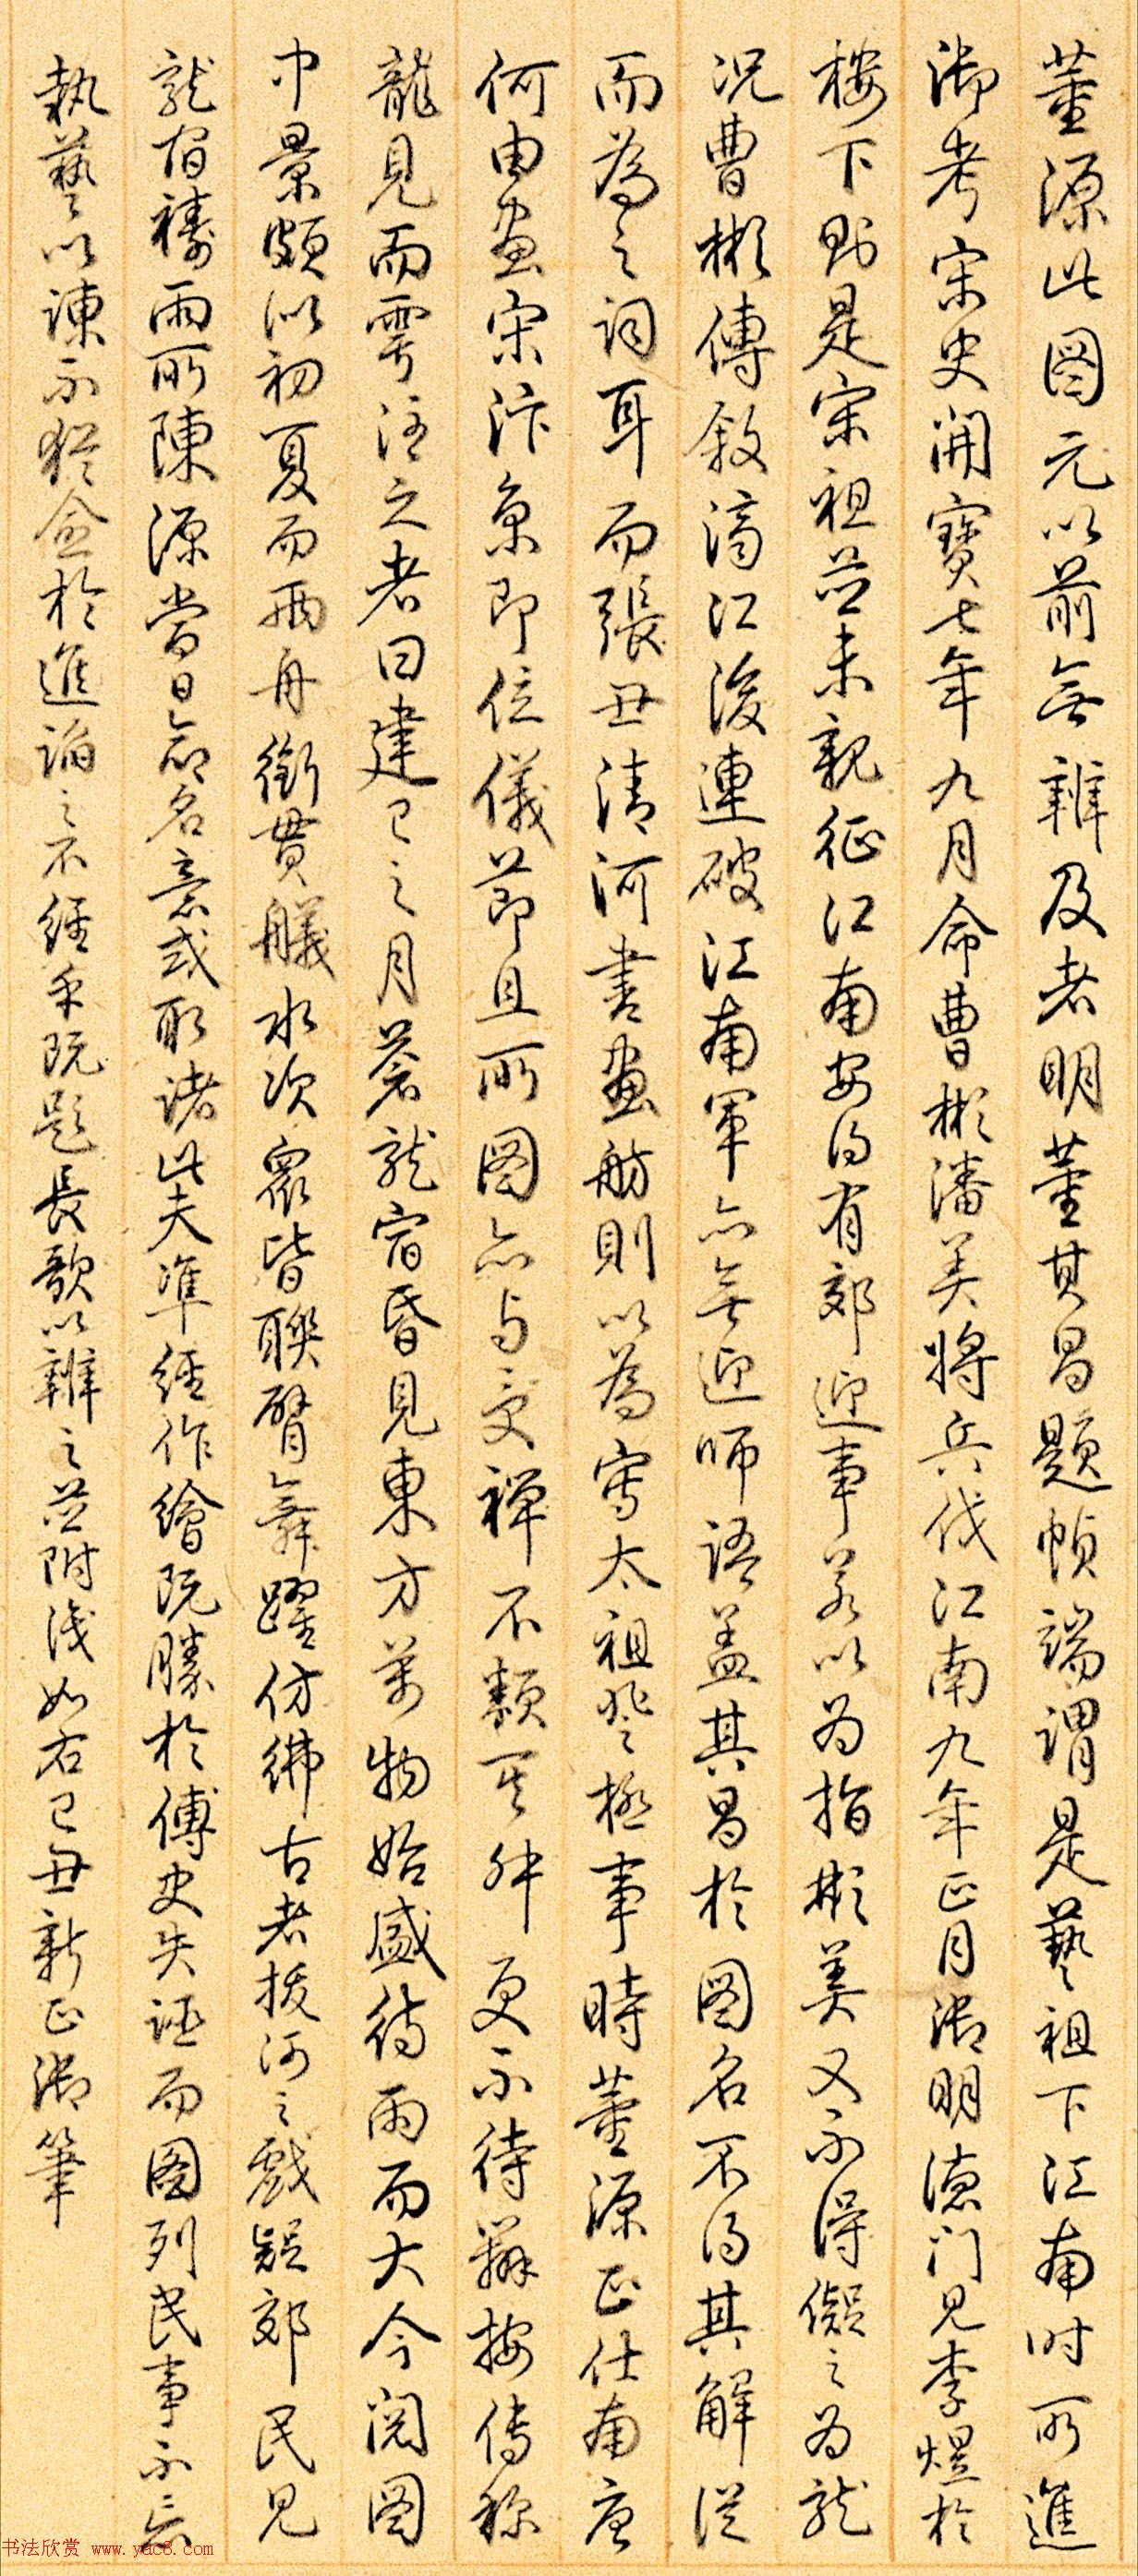 董源此图元以前無辨及者明董其昌題幀端謂是藝祖下江南时所進
御考宋史開寶七年九月命曹彬潘美将兵伐江南九年正月御明德门見李煜於
楼下則是宋祖並未親征江南安得有郊迎事若以为指彬美又不得儗之为龍
况曹彬傳叙濟江後連破江南軍亦無迎师語盖其昌於图名不得其解從
而為之词耳而張丑清河書畫舫則以為寫太祖登極事時董源正仕南唐
何由畫宋汴京即位儀節且所图亦与受禅不類其舛更不待辨按傳称
龍見而雩注之者曰建巳之月蒼龍宿昏見東方萬物始盛待雨而大今阅图
中景頗似初夏而两舟銜貫艤水次衆皆聯臂舞躍仿彿古者拔河之戲疑郊民見
龍宿禱雨所陳源當日命名意或取诸此夫準經作繪既勝於傅史失诬而图列民事不亦
執藝以諫不猶愈於進謟之不經乎既题長歌以辨之並附識如右己丑新正御筆
书法欣赏 www.yac8.com